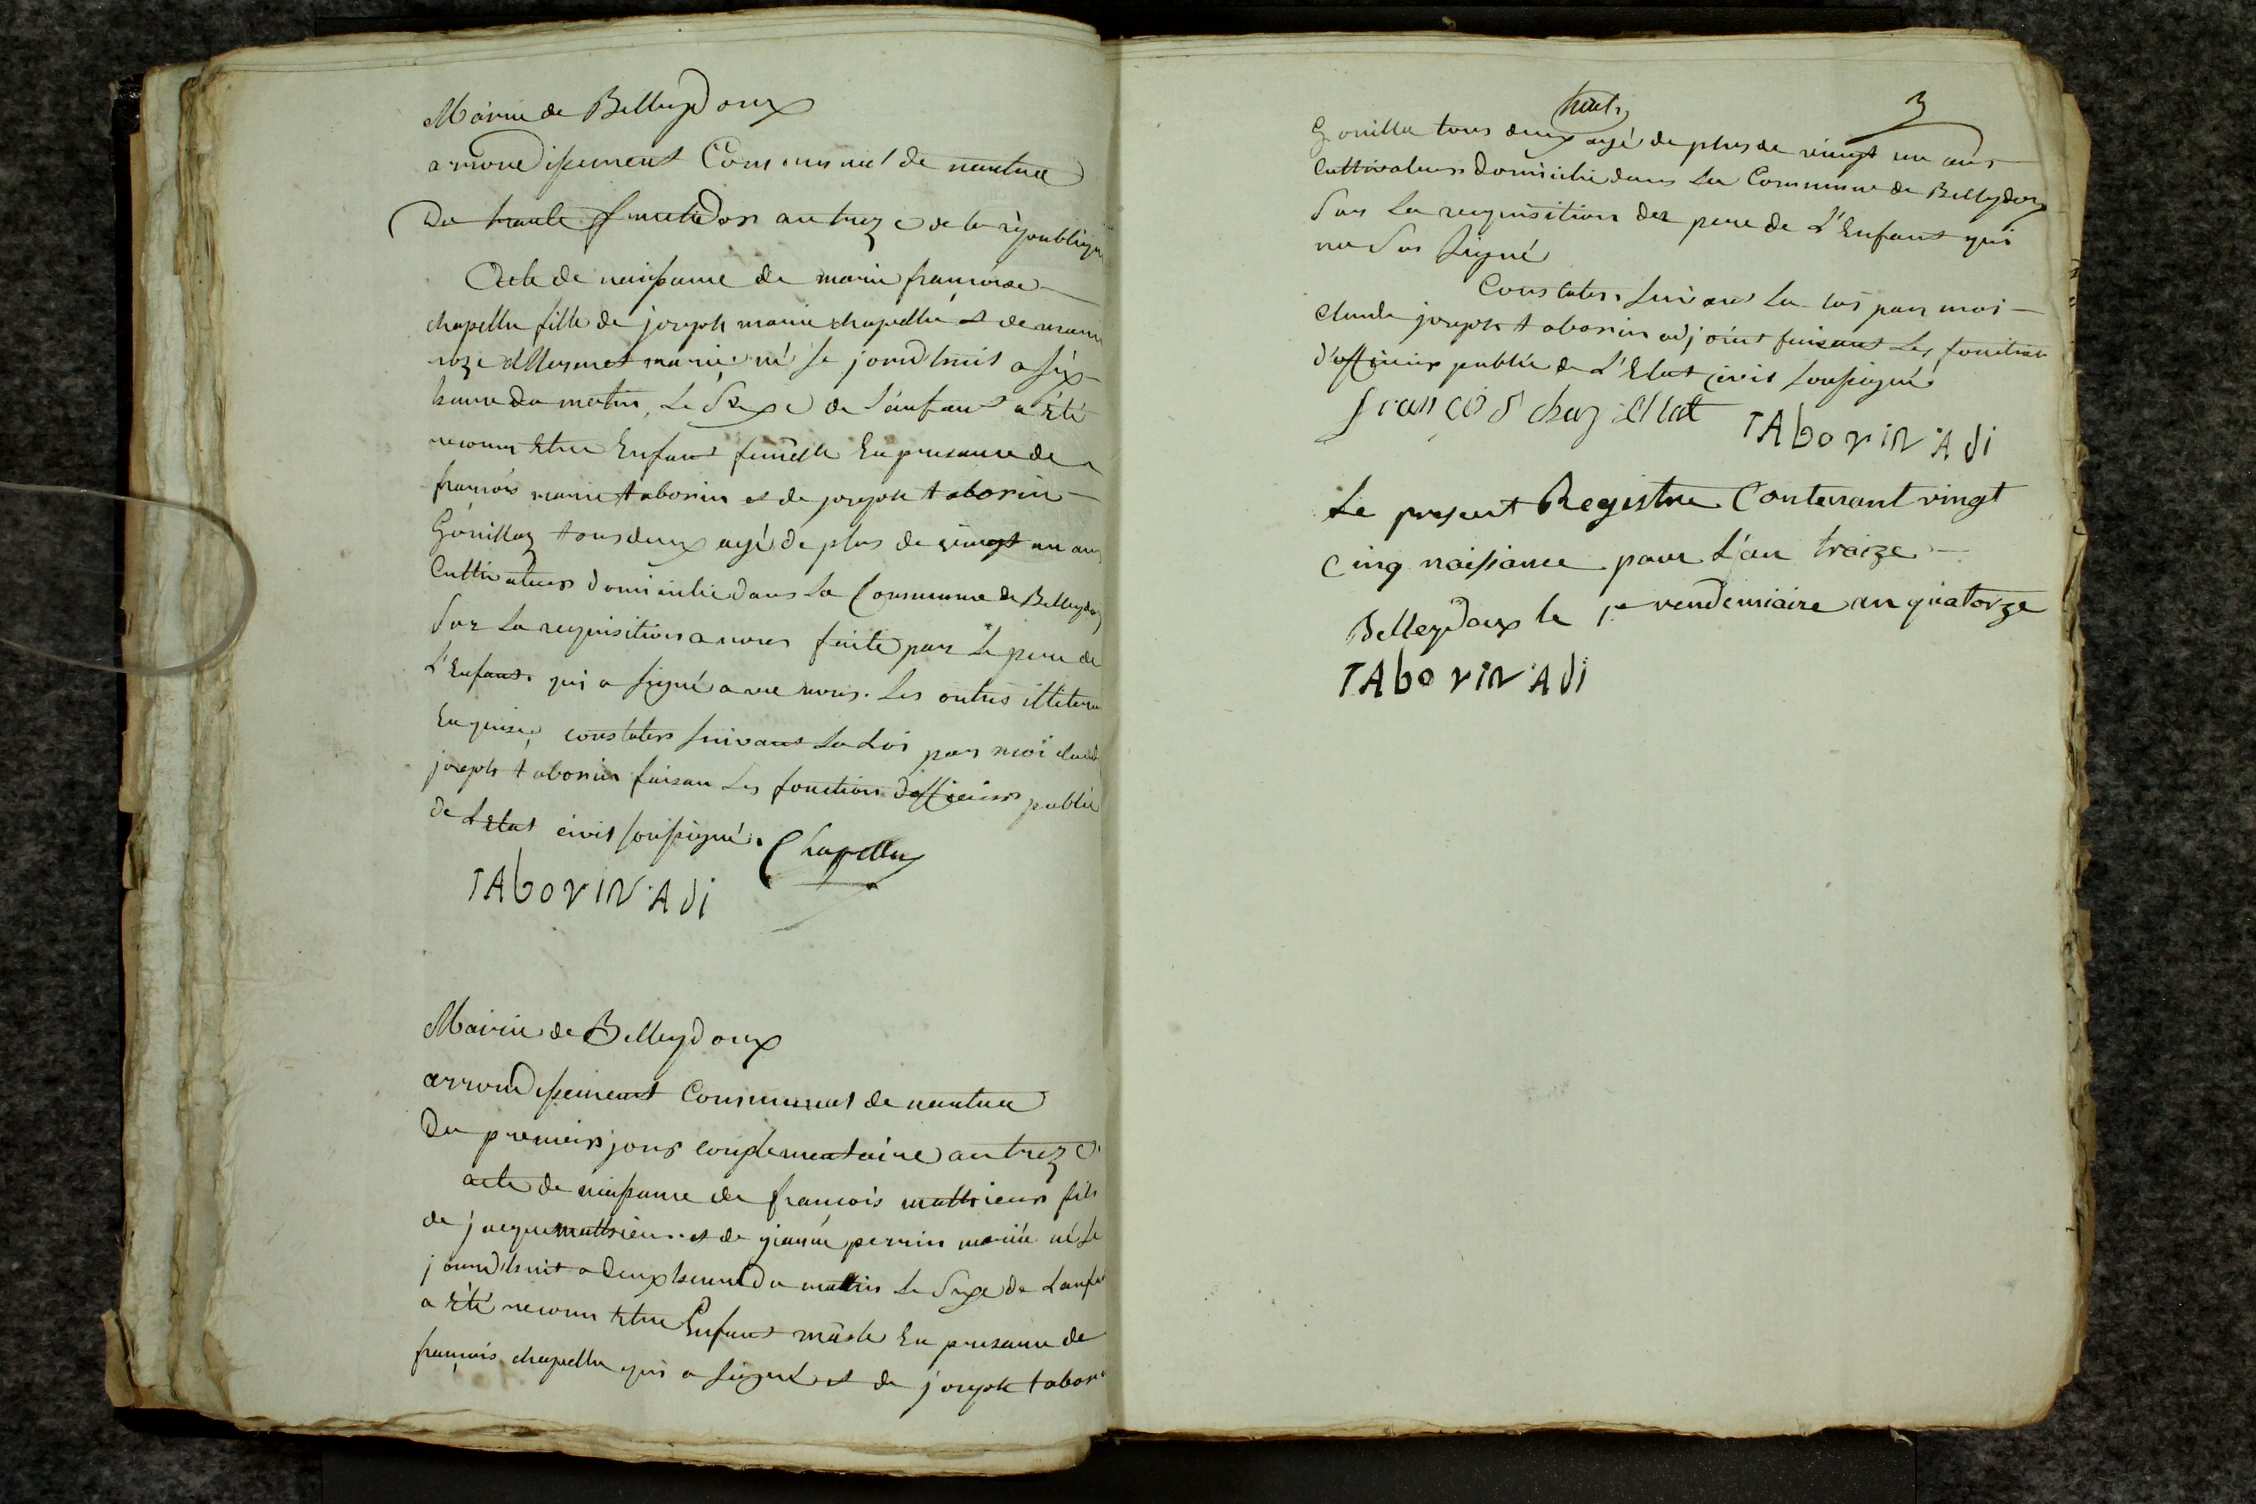 Mairie de Belleydoux
arrondissement Communal de nantua
Du trante fructidor an treze de la republique
Acte de naissance de marie francoise
chapellu fille de joseph marie chapellu et de marie
roze mermet marié né le jourdhuit a six
heure du matin, Le Sexe de l'enfant a été
reconnu Etre Enfant femelle En presance de
francois marie taborin et de joseph taborin
Gonillaz tous deux agé de plus de vingt un ans
Cultivateurs domicilie dans la Commune de Belleydoux
Sur la requisition a nous faite par Le pere de
L'Enfant qui a signé avec nous. Les autres illeteré
Enquise, constater suivant La Loi par moi claude
joseph taborin faisan Les fonction d'officier public
de L'Etat civil soussigné. Chapellu
TAboriN Adi
Mairie de Belleydoux
arrondissement Communal de nantua
Du premier jour complementaire an treze
acte de naissance de francois mathieur fils
de jacque mathieur et de perrin marié né Le
jourdhuit a Deux heure Du matin Le Sexe de Lanfant
a Eté reconu Etre Enfant mâsle En presance de
francois chapellu qui a signé et de joseph taborin
huit 3
Gonilla tous deux agé de plus de vingt un ans
Cultivateurs domicilié dans La Commune de Belleydoux
Sur La requisition der pere de L'Enfant qui
ne Sai signé
Constater, suivant La loi par moi
claude joseph taborin adjoint faisant Les fonction
d'officier public de L'Etat civil soussigné
francois chapellut TAboriN Adi
Le present Registre Contenant vingt
cinq naissance pour L'an traize
Belleydoux le 1er vendemiaire an quatorze
TAboriN Adi